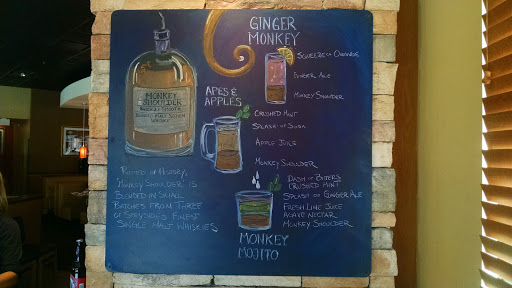 GINGER
MONKEY
SQUEEZE OF ORANGE
GINGER ALE
MONKEY SHOULDER
MONKEY
SHOULDER
BLENDED MALT SCOTCH
WHISKY
APES &
APPLES
CRUSHED MINT
SPLASH OF SODA
APPLE JUICE
MONKEY SHOULDER
"MONKEY SHOULDER" IS
BLENDED IN SMALL
BATCHES FROM THREE
OF SPEYSIDE'S FINEST
SINGLE MALT WHISKIES
DASH OF BITTERS
CRUSHED MINT
SPLASH OF GINGER ALE
FRESH LIME JUICE
AGAVE NECTAR
MONKEY SHOULDER
MONKEY
MOJITO